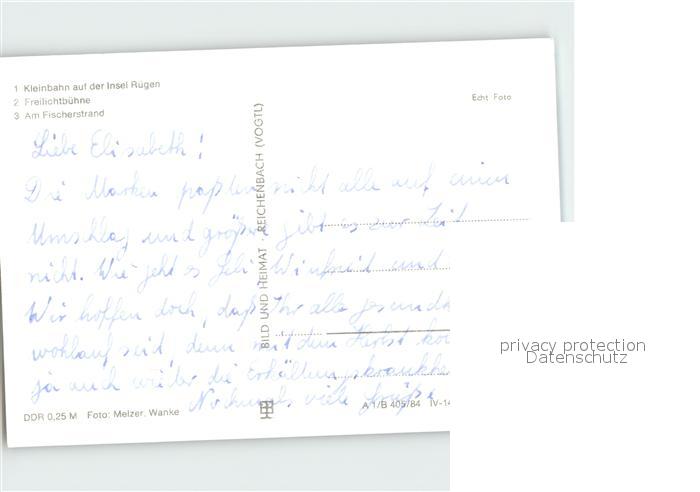 1 Kleinbahn auf der Insel Rügen
2 Freilichtbühne
3 Am Fischerstrand
Echt Foto
Liebe Elisabeth!
Die Marken paßten nicht alle auf einen
Umschlag und größere gibt es zur Zeit
nicht. Wie geht es Wilfried und
Wir hoffen doch, daß Ihr alle gesund
wohlauf seid, denn mit dem Herbst
ja auch wieder die
Nochmals viele Grüße
BILD UND HEIMAT · REICHENBACH (VOGTL)
DDR 0,25 M Foto: Melzer, Wanke
A 1/B 405/84 IV-14
privacy protection
Datenschutz